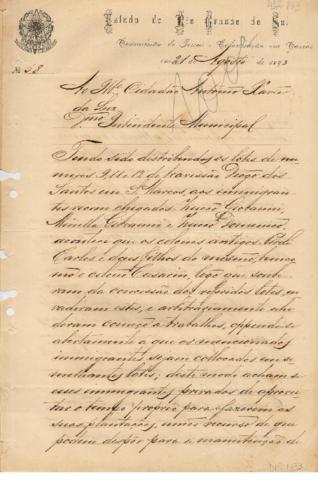 Estado do Rio Grande do Sul
Commissão de Terras e Colonisação em Caxias
em 21 de Agosto de 1893
Nº 98
Ao Illº Cidadão Antonio Xavier
da Luz
Intendente Municipal
Tendo sido distribuidos os lotes de nu-
meros 9, 11 e 13 da travessão Diogo dos
Santos em S. Marcos, aos immigrantes
recem chegados Giovanni,
Giovanni e Domenico,
acontece que os colonos antigos
Carlos e dous filhos do mesmo,
e o colono Casarin, logo que soube-
ram da concessão dos referidos lotes, in-
vadiram estes, e arbitrariamente ahi
deram começo a trabalhos, oppondo-se
abertamente a que os mencionados
immigrantes sejam collocados em se-
melhantes lotes; deste modo acham-se
esses immigrantes privados de aprovei-
tar o tempo proprio para fazerem as
suas plantações, unico recurso de que
podem dispor para a manutenção de